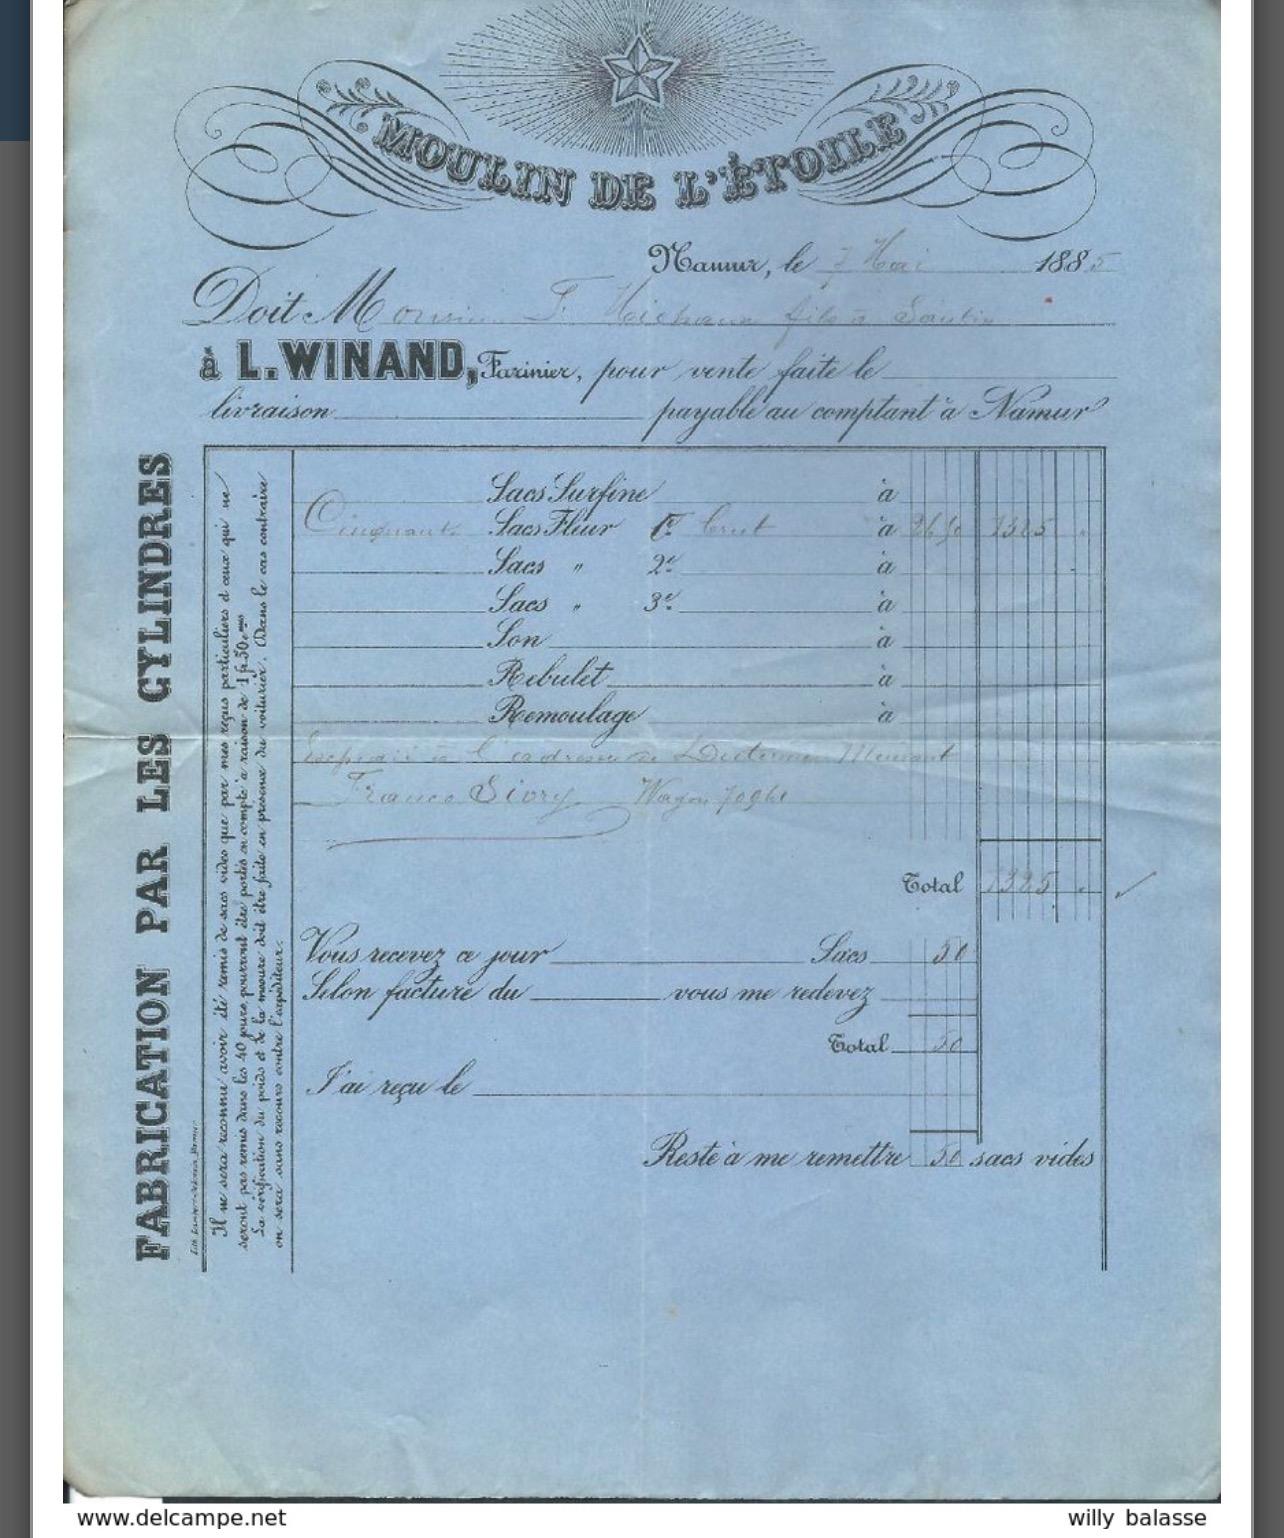 MOULIN DE L'ÉTOILE
Namur, le 7 Mai 1885
Doit M F. fils à
à L. WINAND, Farinier, pour vente faite le
livraison payable au comptant à Namur
FABRICATION PAR LES CYLINDRES
Il ne sera reconnu avoir été remis de sacs vides que par mes reçus particuliers & ceux qui ne
seront pas remis dans les 40 jours pourront être portés en compte à raison de 1 fr. 50 cmes
La vérification du poids et de la mesure doit être faite en présence du voiturier. Dans le cas contraire
on sera sans recours contre l'expéditeur.
Sacs Surfine à
Cinquante Sacs Fleur 1re brut à 26 50 1325
Sacs " 2e à
Sacs " 3e à
Son à
Rebulet à
Remoulage à
à l'adresse de
Franco Wagon
Total 1325
Vous recevez ce jour Sacs 50
Selon facture du vous me redevez
Total 50
J'ai reçu le
Reste à me remettre 50 sacs vides
www.delcampe.net
willy balasse